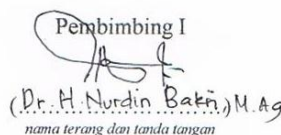 Pembimbing I
(Dr. H. Nurdin Bakri) M. Ag
nama terang dan tanda tangan